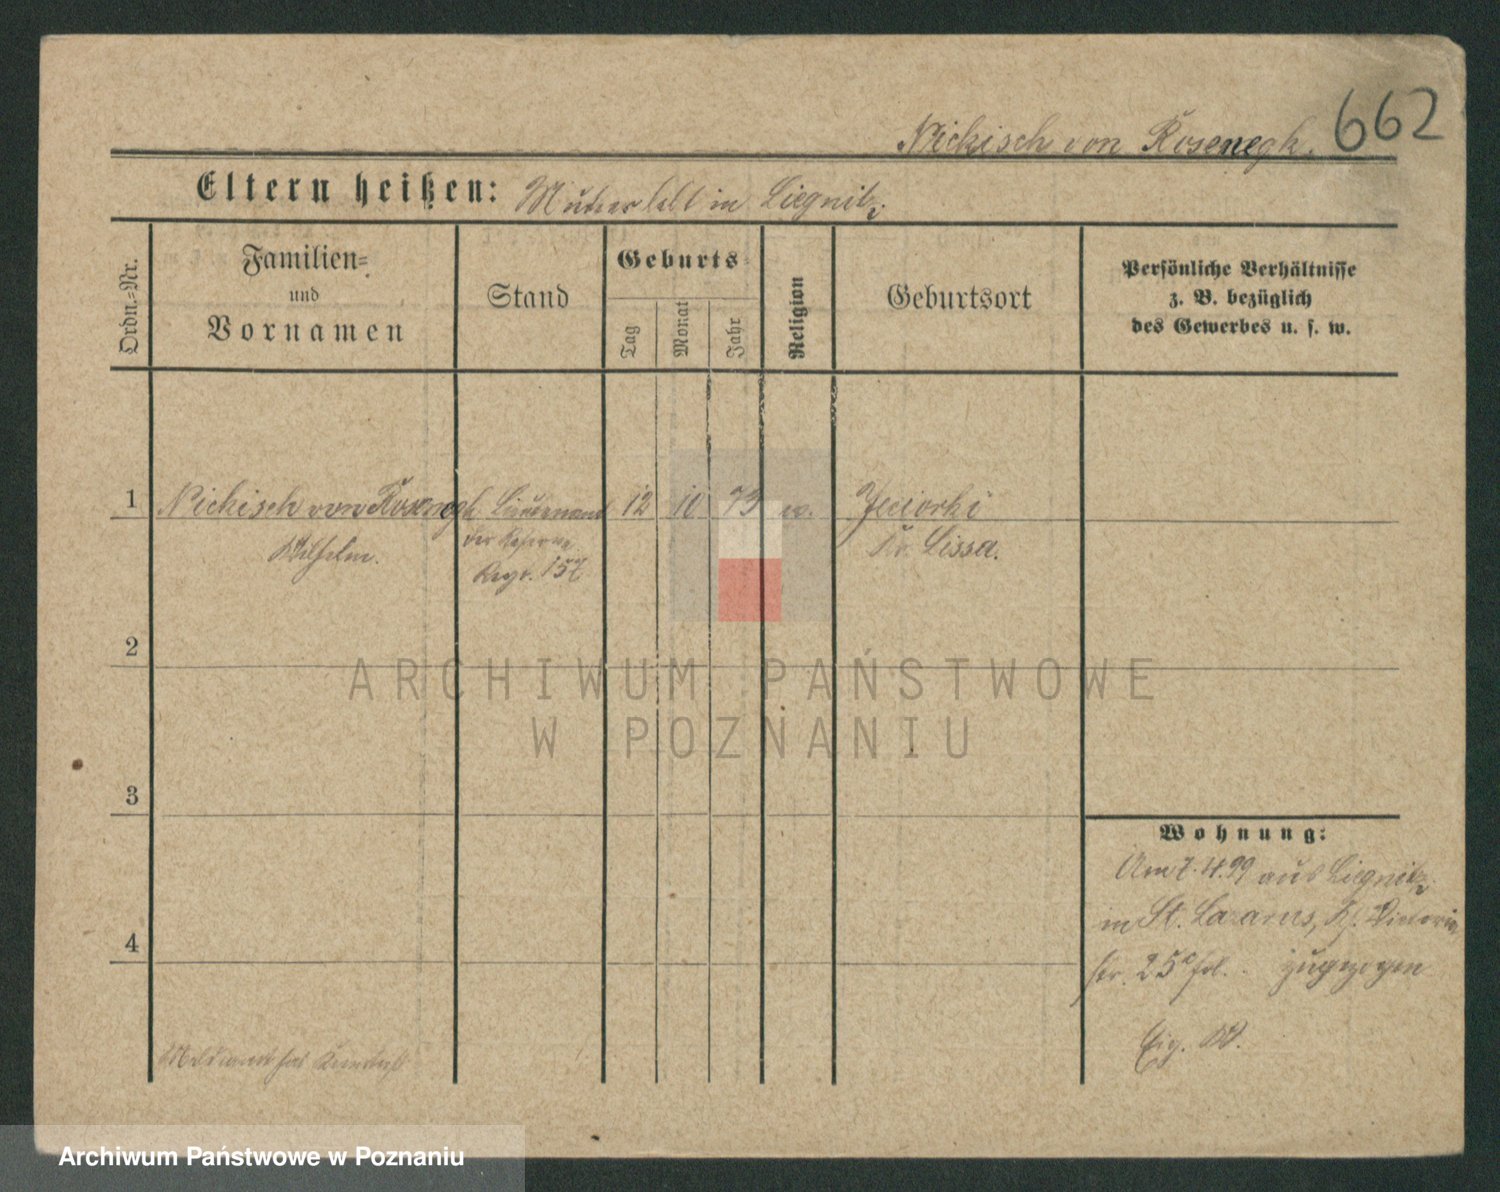 662
Nickisch von Rosenegk.
Eltern heißen: Mutter lebt in Liegnitz
Ordn.-Nr.
Familien-
und
Vornamen
Stand
Geburts-
Tag
Monat
Jahr
Religion
Geburtsort
Persönliche Verhältnisse
z. B. bezüglich
des Gewerbes u. s. w.
1 Nickisch von Rosenegk Lieutenant 12 10 73 ev. Jeziorki
Wilhelm. der Reserve Kr. Lissa.
Regt. 157
2
3
4
Wohnung:
Am 7.4.99 aus Liegnitz
in St. Lazarus, Victoria
str. 25 zugezogen
Eig. W.
Meldeamt hat Kenntniß
ARCHIWUM PAŃSTWOWE
W POZNANIU
Archiwum Państwowe w Poznaniu